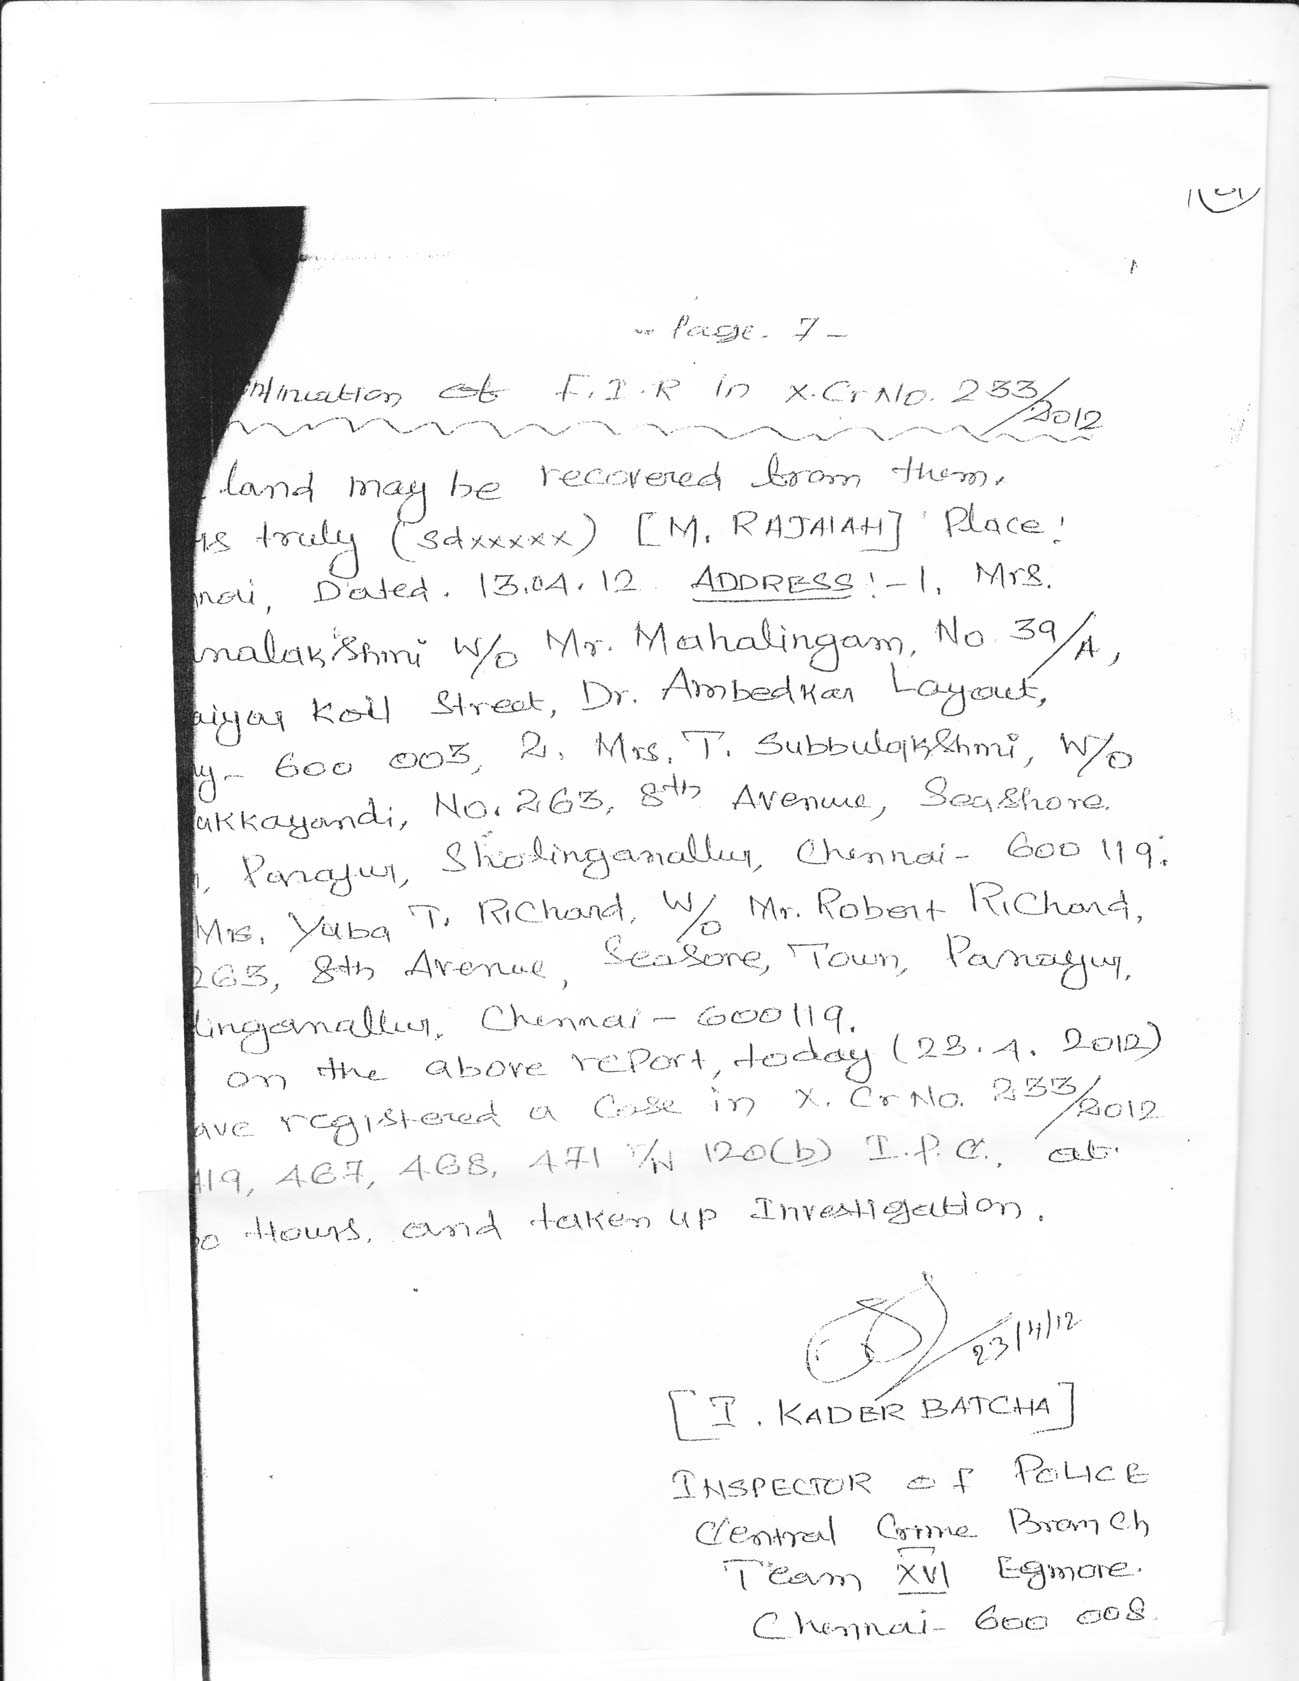 -- Page. 7 -
ntinuation of F.I.R in X.CrNo. 233/2012
land may be recovered from them.
rs truly (sdxxxxx) [M. RAJAIAH] Place:
nai, Dated. 13.04.12 ADDRESS:-1, Mrs.
nalakshmi W/o Mr. Mahalingam, No 39/A,
aiyar Koil Street, Dr. Ambedkar Layout,
y- 600 003, 2. Mrs. T. Subbulakshmi, W/o
ukkayandi, No. 263, 8th Avenue, Seashore.
, Panayur, Sholinganallur, Chennai- 600 119.
Mrs. Yuba T. Richard, W/o Mr. Robert Richard,
263, 8th Avenue, Seasore, Town, Panayur,
linganallur, Chennai - 600119.
on the above report, today (23.4.2012)
ave registered a Case in X. CrNo. 233/2012
419, 467, 468, 471 r/w 120(b) I.P.C., at
o Hours. and taken up Investigation.
23/4/12
[I. KADER BATCHA]
INSPECTOR of POLICE
Central Crime Branch
Team XVI Egmore.
Chennai- 600 008.